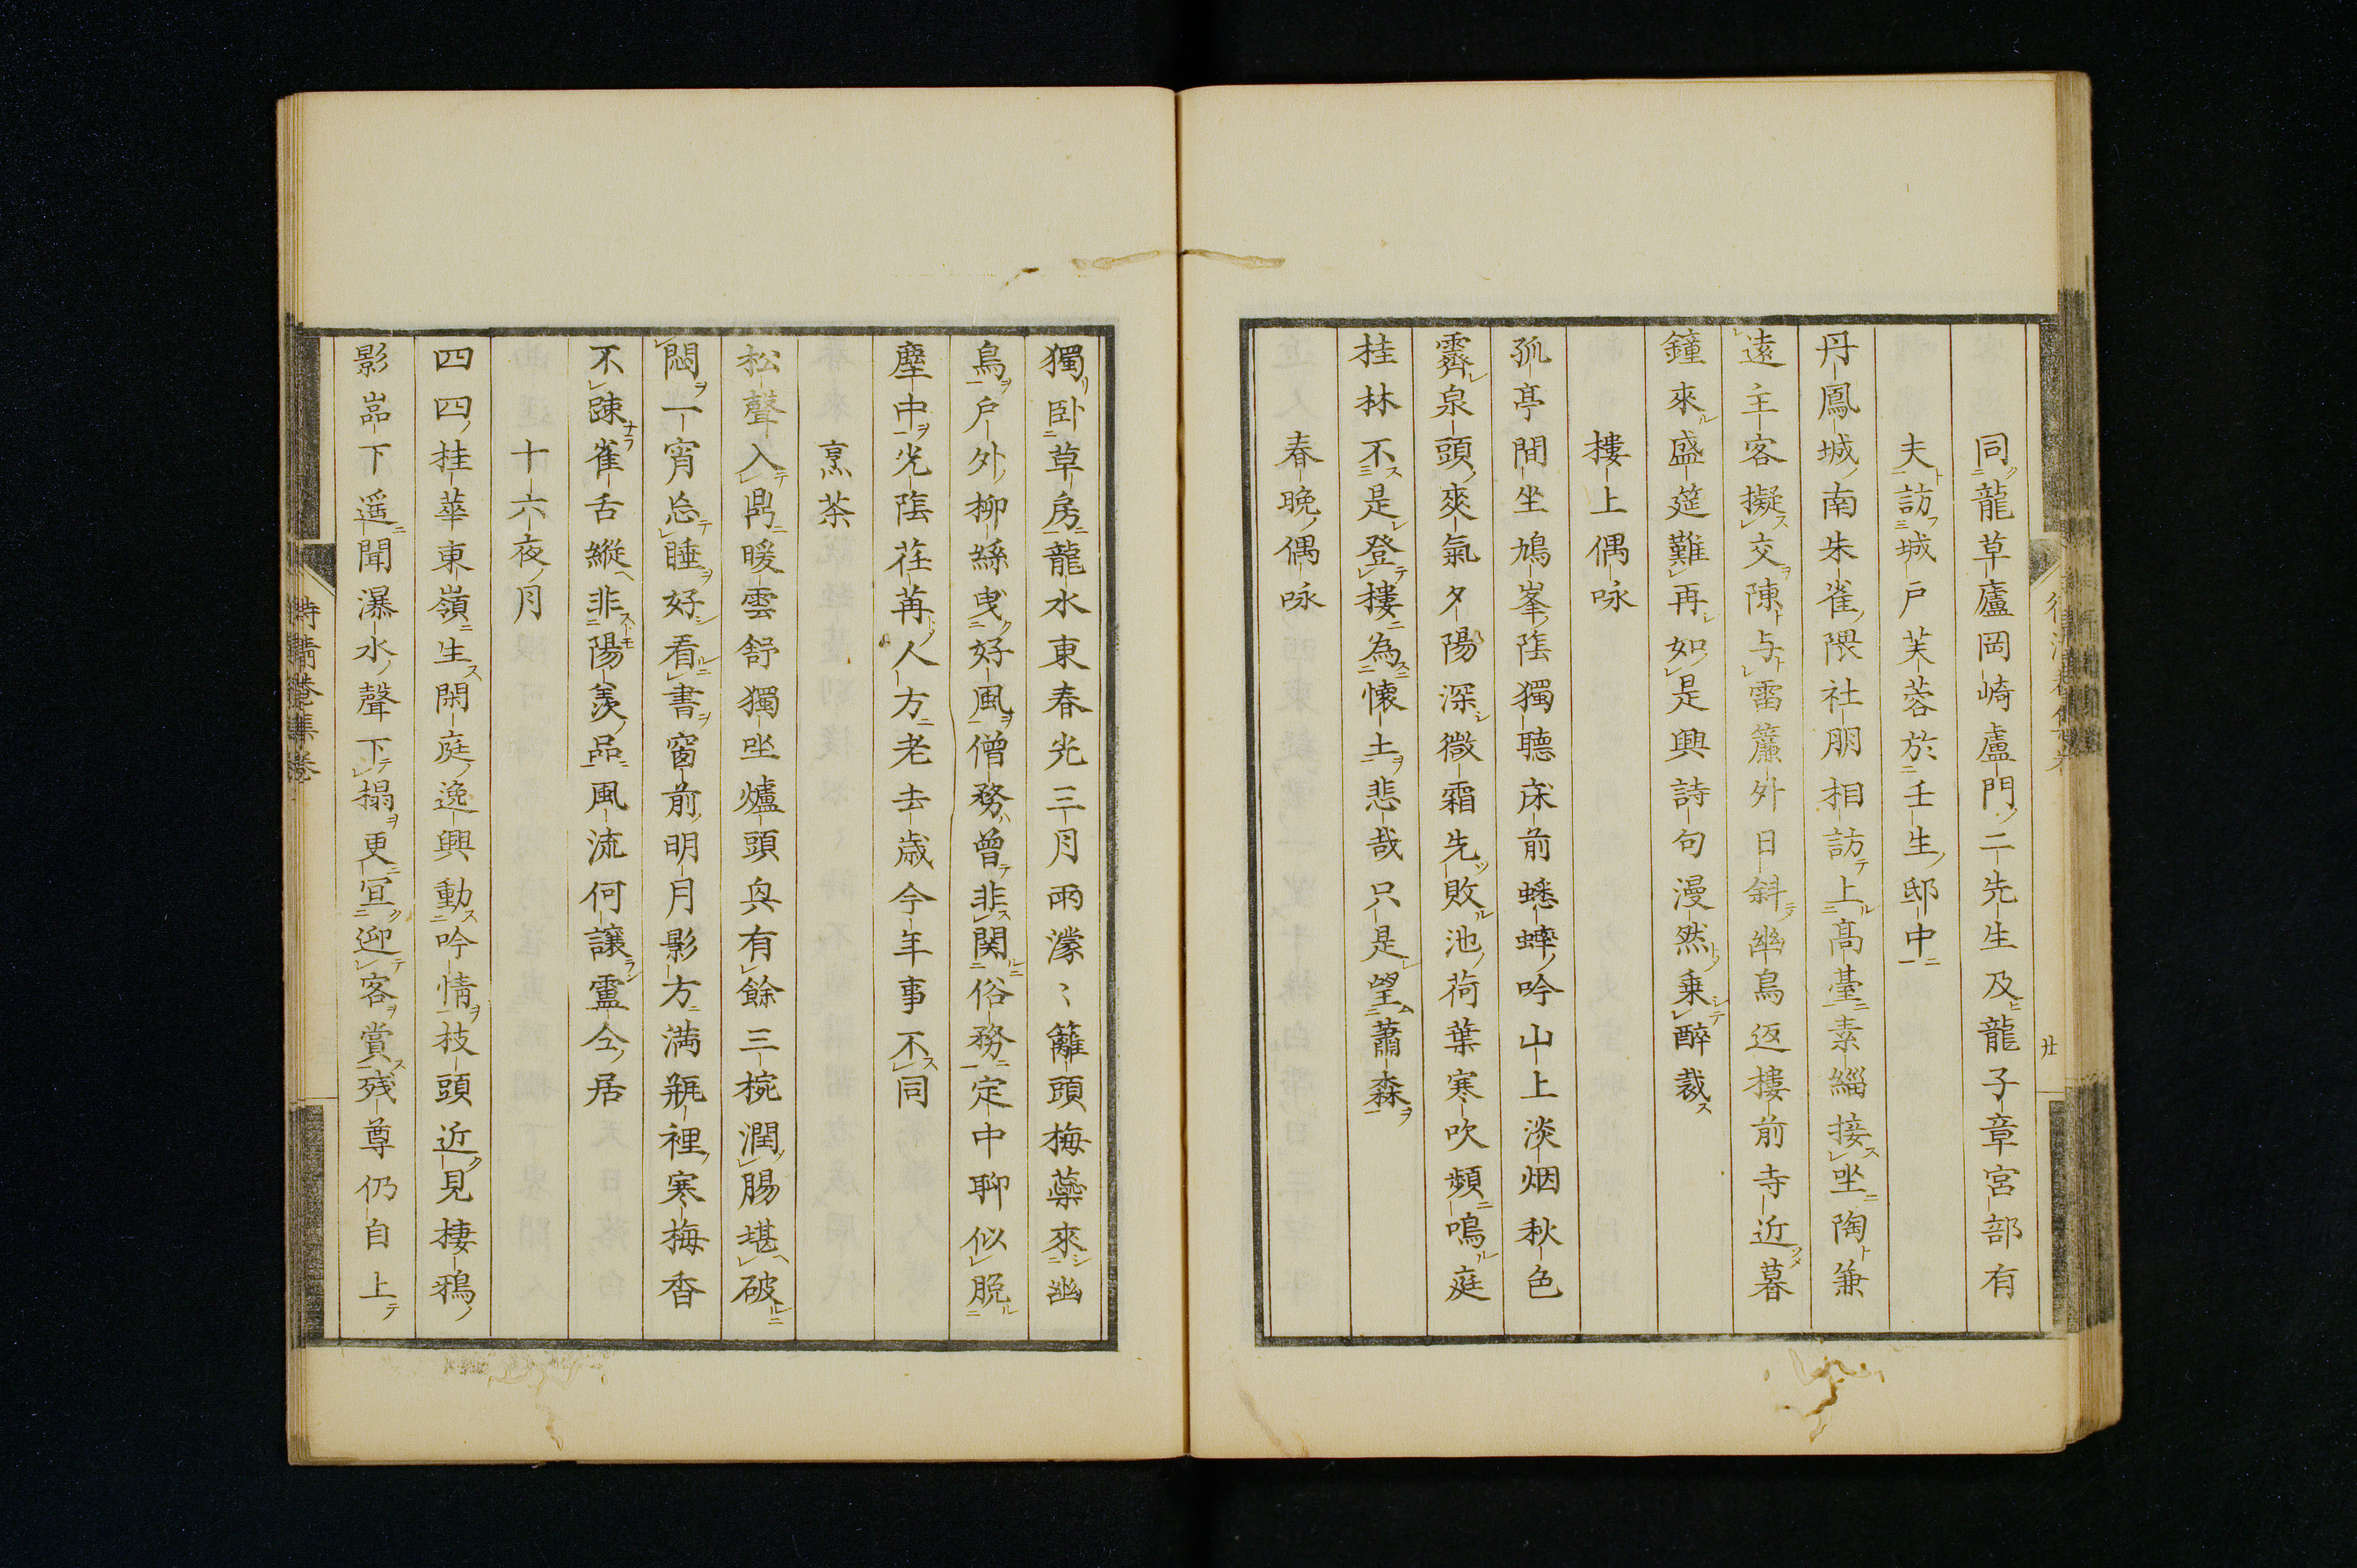 同龍草廬岡崎盧門二先生及龍子章宮部有
夫訪城戸芙蓉於壬生邸中
丹鳳城南朱雀隈社朋相訪上髙臺素緇接坐陶兼
遠主客擬交陳与雷簾外日斜幽鳥返樓前寺近暮
鐘來盛筵難再如是興詩句漫然乗醉裁
樓上偶咏
孤亭間坐鳩峯陰獨聽床前蟋蟀吟山上淡烟秋色
霽泉頭爽氣夕陽深微霜先敗池荷葉寒吹頻鳴庭
桂林不是登樓為懐土悲哉只是望蕭森
春晩偶咏
獨卧草房龍水東春光三月雨濛〻籬頭梅蘂來幽
鳥戸外柳絲曳好風僧務曾非関俗務定中聊似脱
塵中光陰荏苒人方老去歳今年事不同
烹茶
松聲入鼎暖雲舒獨坐爐頭與有餘三椀潤腸堪破
悶一宵忘睡好看書窗前明月影方満瓶裡寒梅香
不踈雀舌縱非陽羨品風流何讓盧仝居
十六夜月
四四桂華東嶺生閑庭逸興動吟情枝頭近見棲鴉
影嵓下遥聞瀑水聲下榻更冝迎客賞残尊仍自上